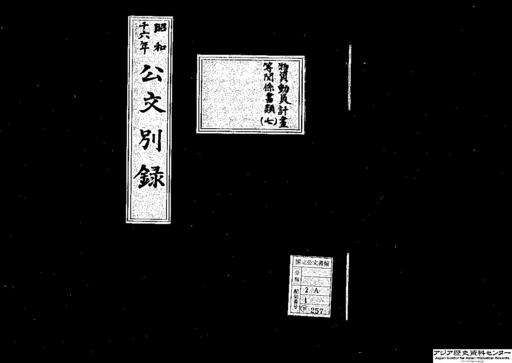 昭和
十六年
公文別録
物資動員計畫
等関係書類(七)
国立公文書館
分類
配架番号
2 A
1
257
アジア歴史資料センター
Japan Center for Asian Historical Records